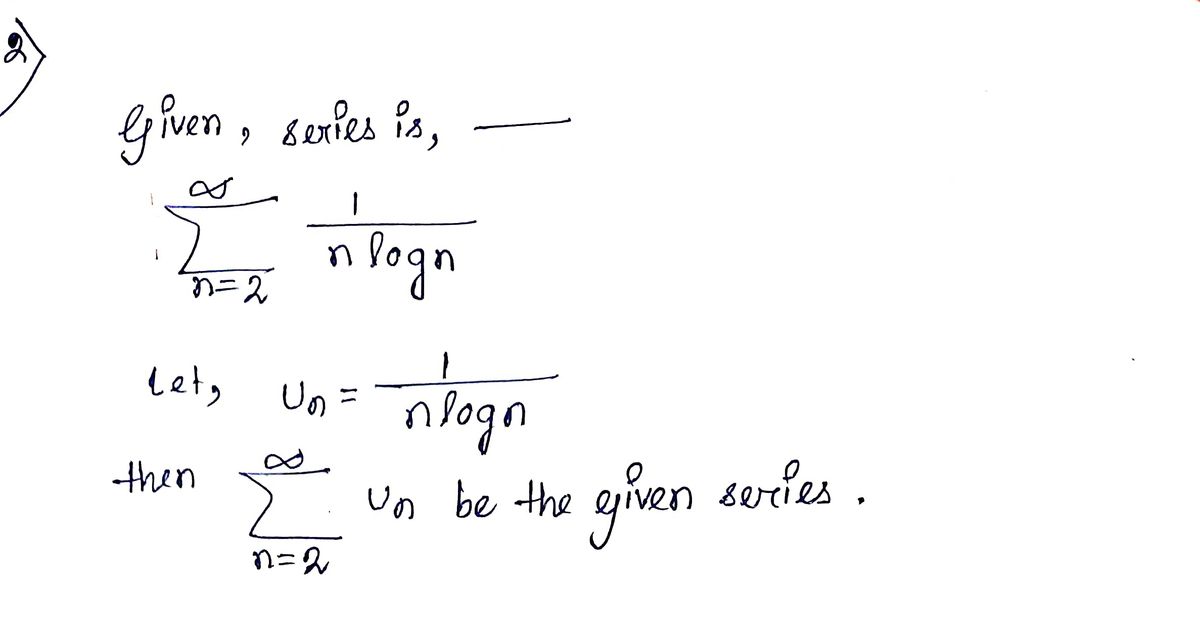 2)
Given, series is, —
∞
∑ 1/(n log n)
n=2
Let, Un = 1/(n log n)
then ∞
∑ Un be the given series.
n=2